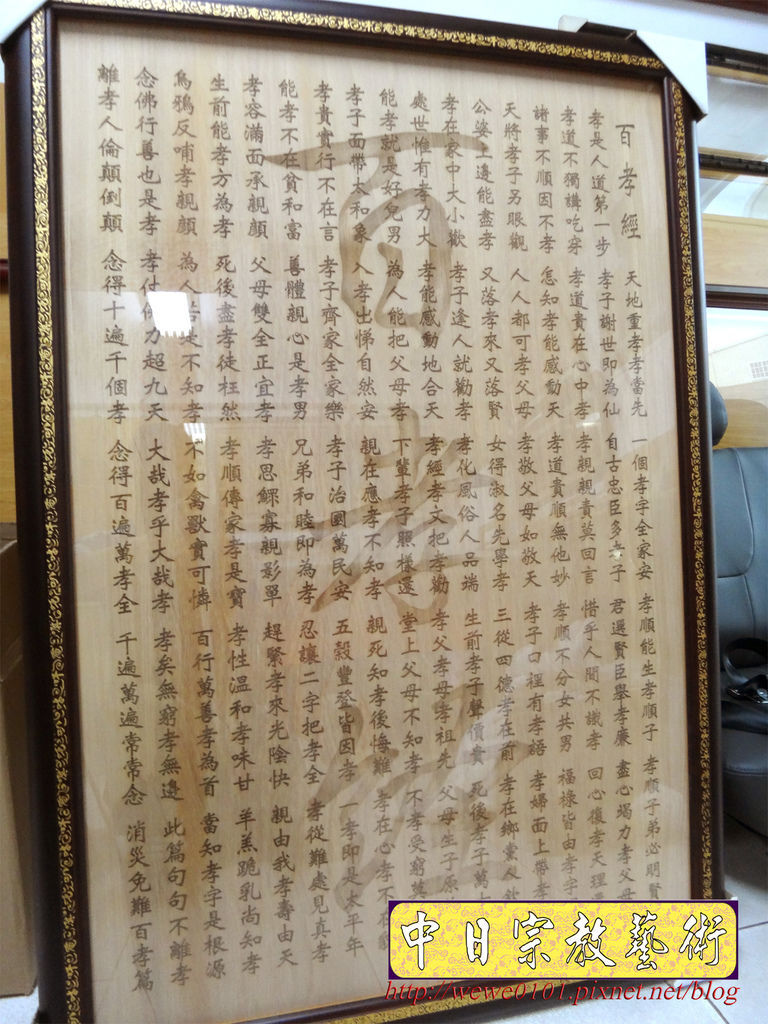 百孝經 天地重孝孝當先 一個孝字全家安 孝順能生孝順子 孝順子弟必明賢
孝是人道第一步 孝子謝世即為仙 自古忠臣多孝子 君選賢臣舉孝廉 盡心竭力孝父母
孝道不獨講吃穿 孝道貴在心中孝 孝親親責莫回言 惜乎人間不識孝 回心復孝天理
諸事不順因不孝 怎知孝能感動天 孝道貴順無他妙 孝順不分女共男 福祿皆由孝字
天將孝子另眼觀 人人都可孝父母 孝敬父母如敬天 孝子口裡有孝語 孝婦面上帶孝
公婆上邊能盡孝 又落孝來又落賢 女得淑名先學孝 三從四德孝在前 孝在鄉黨人欽
孝在家中大小歡 孝子逢人就勸孝 孝化風俗人品端 生前孝子聲價貴 死後孝子萬
處世惟有孝力大 孝能感動地合天 孝經孝文把孝勸 孝父孝母孝祖先 父母生子原
能孝就是好兒男 為人能把父母孝 下輩孝子照樣還 堂上父母不知孝 不孝受窮莫
孝子面帶太和象 入孝出悌自然安 親在應孝不知孝 親死知孝後悔難 孝在心孝不在
孝貴實行不在言 孝子齊家全家樂 孝子治國萬民安 五穀豐登皆因孝 一孝即是太平年
能孝不在貧和富 善體親心是孝男 兄弟和睦即為孝 忍讓二字把孝全 孝從難處見真孝
孝容滿面承親顏 父母雙全正宜孝 孝思鰥寡親影單 趕緊孝來光陰快 親由我孝壽由天
生前能孝方為孝 死後盡孝徒枉然 孝順傳家孝是寶 孝性溫和孝味甘 羊羔跪乳尚知孝
烏鴉反哺孝親顏 為人若是不知孝 不如禽獸實可憐 百行萬善孝為首 當知孝字是根源
念佛行善也是孝 孝仗佛力超九天 大哉孝乎大哉孝 孝矣無窮孝無邊 此篇句句不離孝
離孝人倫顛倒顛 念得十遍千個孝 念得百遍萬孝全 千遍萬遍常常念 消災免難百孝篇
百孝經
中日宗教藝術
http://wewe0101.pixnet.net/blog